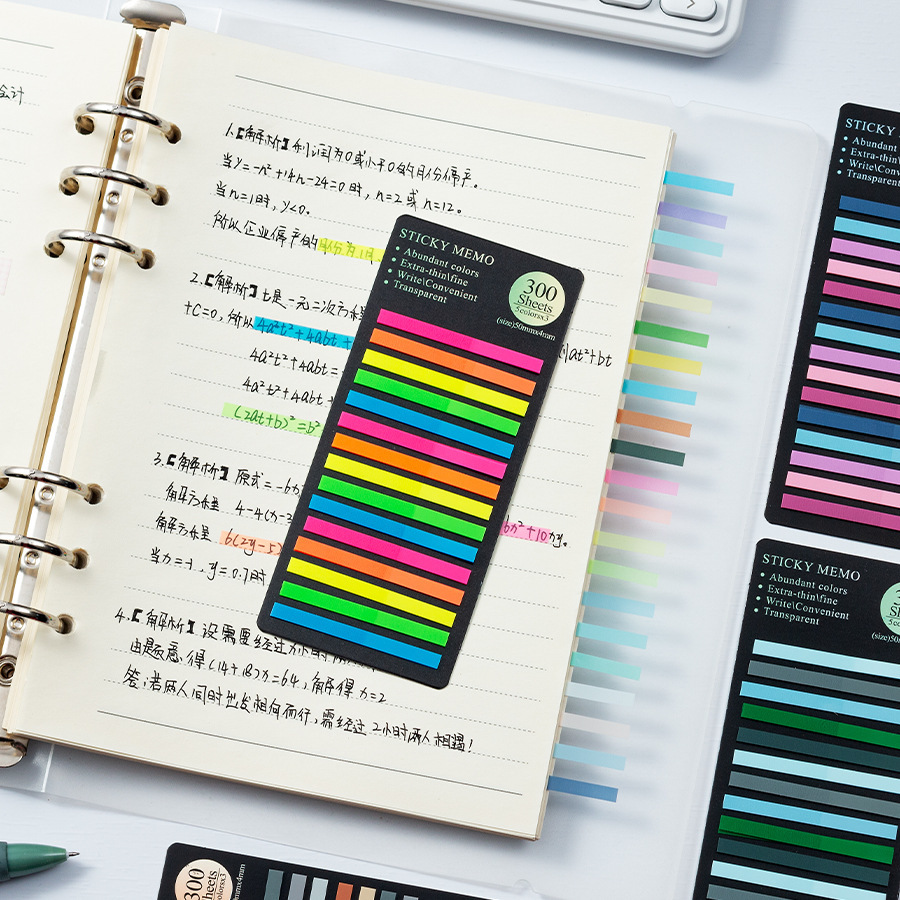 会计
1.【解析】利润为0或小于0的月份停产。
当y=-n²+14n-24=0时，n=2或n=12。
当n=1时，y<0。
所以企业停产的月份为1月
2.【解析】t是一元二次方程
+C=0，所以4a²t²+4abt+
at²+bt
4a²t²+4abt=
4a²t²+4abt+
(2at+b)²=b²
3.【解析】原式=-6x
6x²+10xy。
解方程 4-4(x-3
解方程 6(2y-5)
当x=-1，y=0.7时
4.【解析】设需要经过x小时
由题意，得(14+18)x=64，解得x=2
答：若两人同时出发相向而行，需经过2小时两人相遇！
STICKY MEMO
Abundant colors
Extra-thin\fine
Write\Convenient
Transparent
300
Sheets
5colorsx3
(size)50mmx4mm
STICKY
Abundant
Extra-thin\
Write\Conv
Transparent
STICKY MEMO
Abundant colors
Extra-thin\fine
Write\Convenient
Transparent
(size)50
300
Sheets